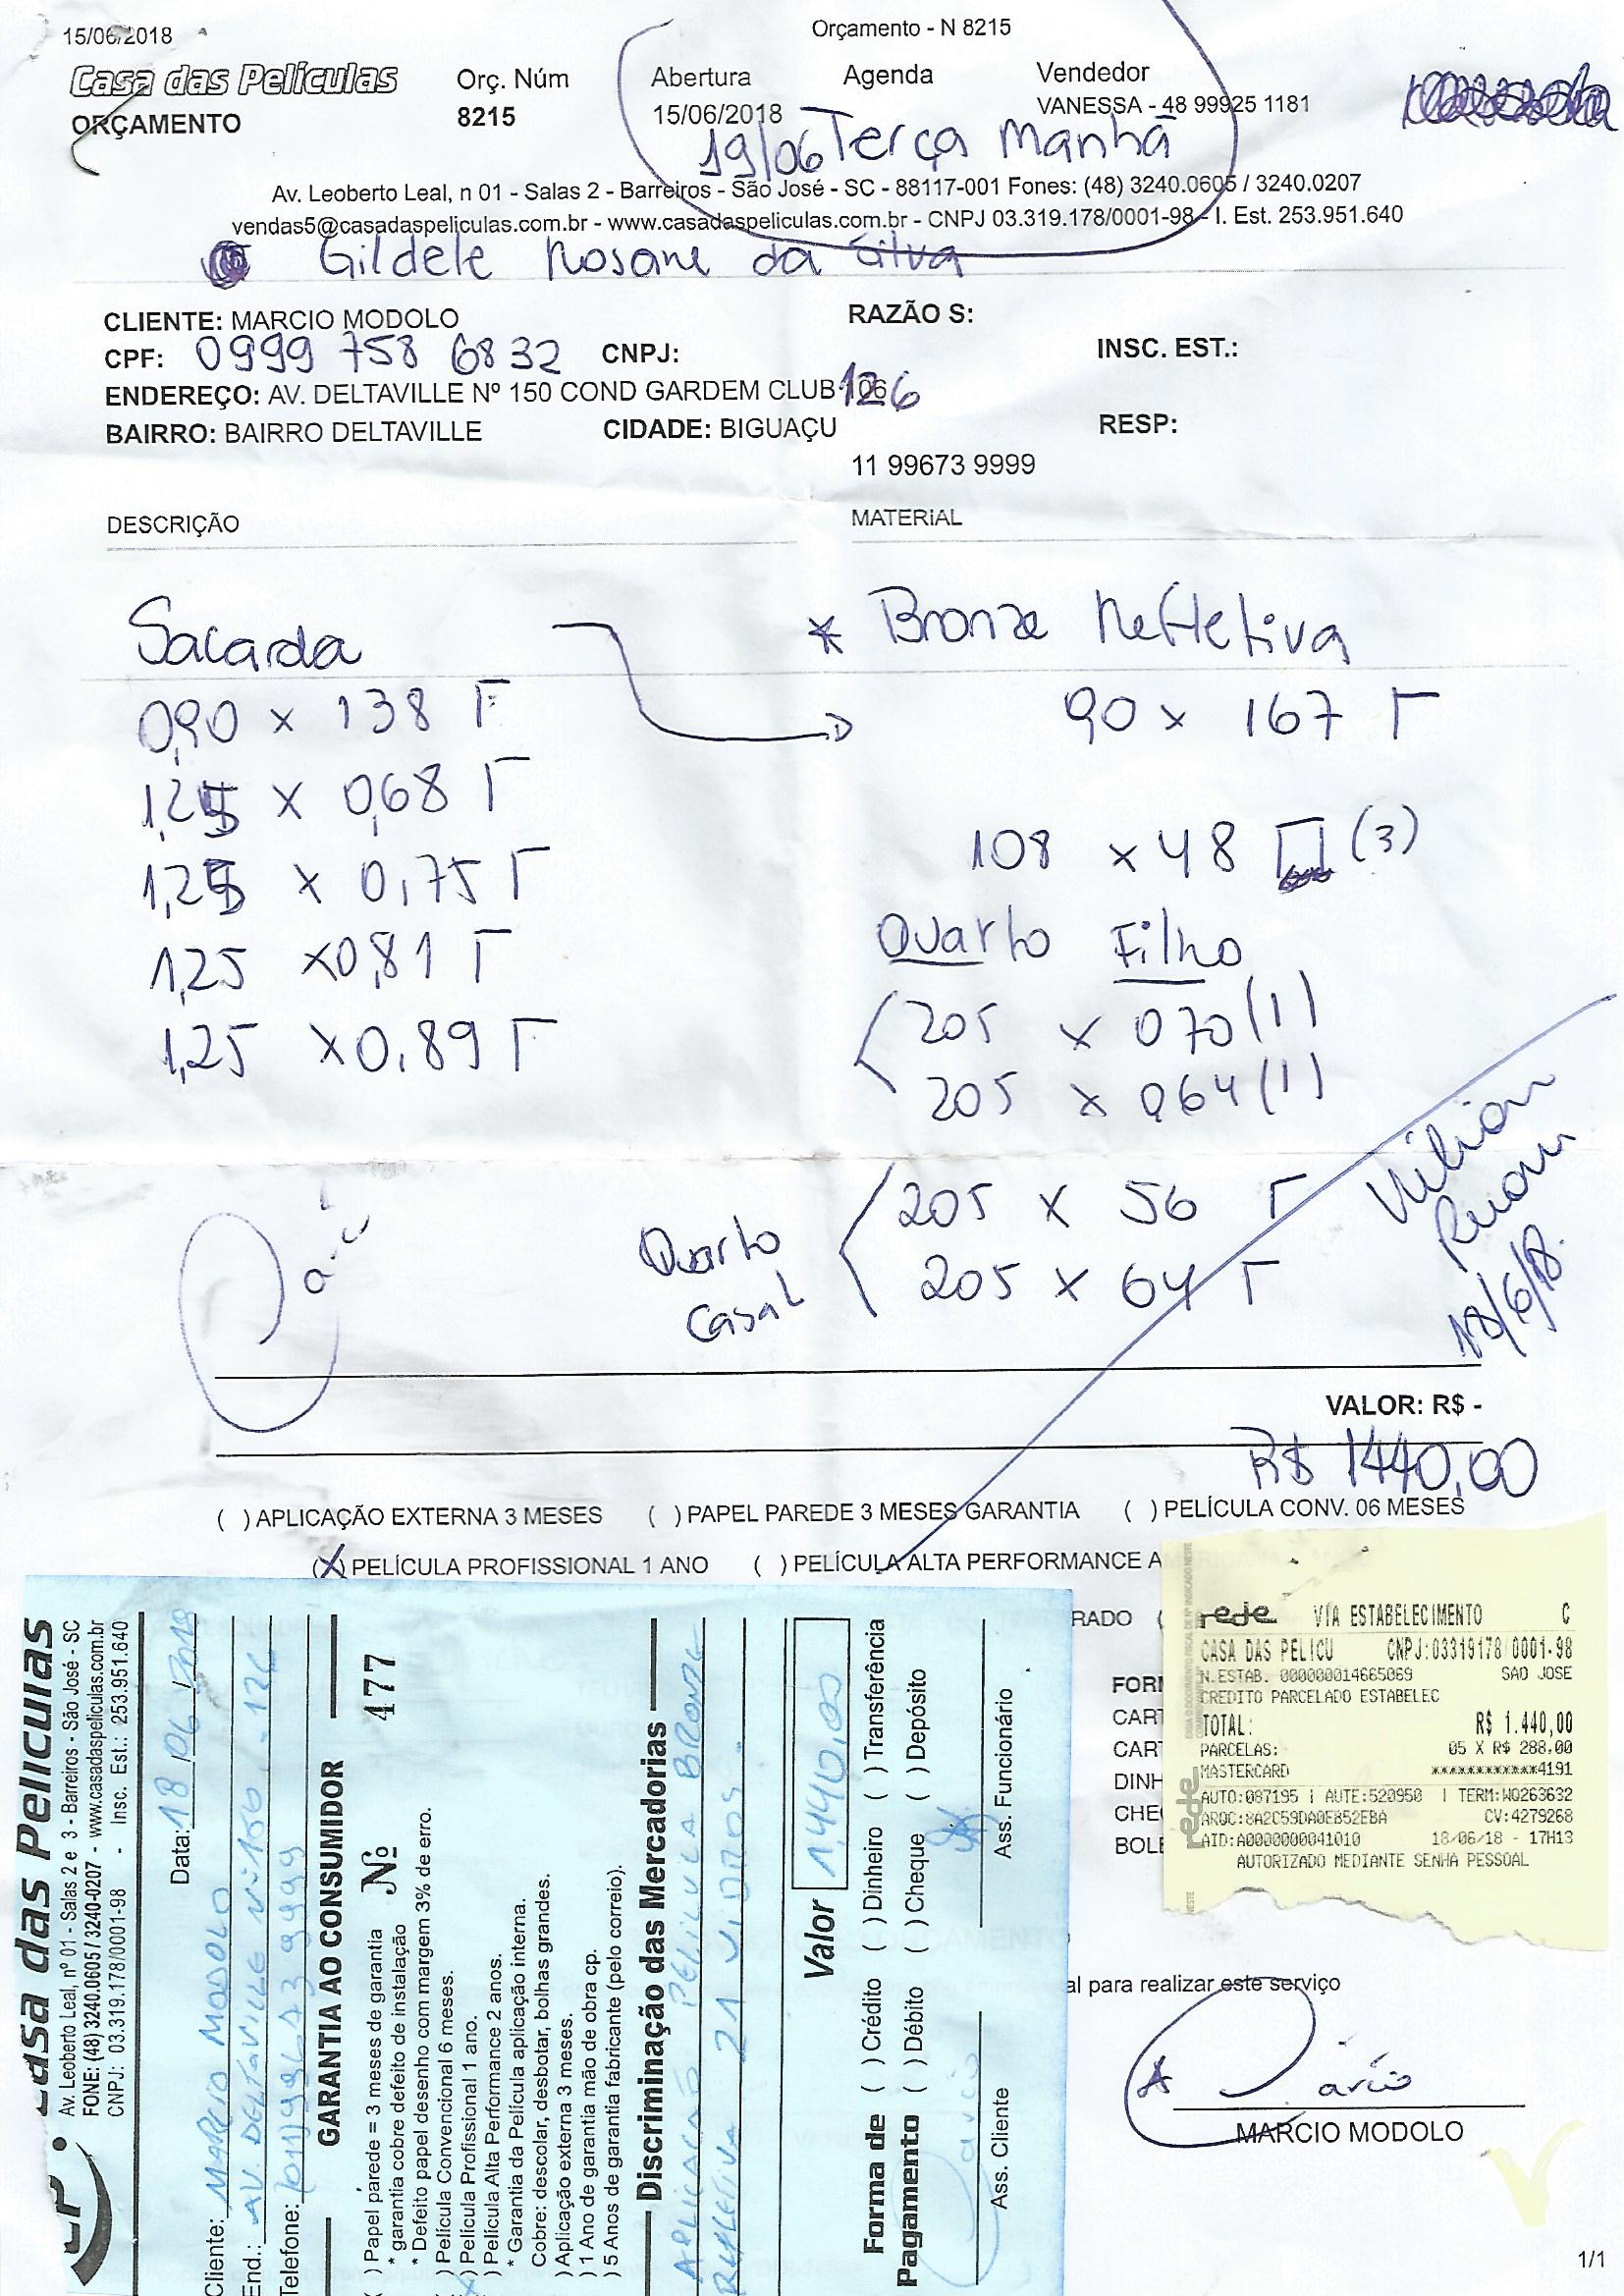 15/06/2018 Orçamento - N 8215
Casa das Películas Orç. Núm Abertura Agenda Vendedor
ORÇAMENTO 8215 15/06/2018 VANESSA - 48 99925 1181
19/06 Terça Manhã
Av. Leoberto Leal, n 01 - Salas 2 - Barreiros - São José - SC - 88117-001 Fones: (48) 3240.0605 / 3240.0207
vendas5@casadaspeliculas.com.br - www.casadaspeliculas.com.br - CNPJ 03.319.178/0001-98 - I. Est. 253.951.640
Gildele Rosane da Silva
CLIENTE: MARCIO MODOLO RAZÃO S:
CPF: 0999 758 6832 CNPJ: INSC. EST.:
ENDEREÇO: AV. DELTAVILLE Nº 150 COND GARDEM CLUB 126
BAIRRO: BAIRRO DELTAVILLE CIDADE: BIGUAÇU RESP:
11 99673 9999
DESCRIÇÃO MATERIAL
Sacarda * Bronze Refletiva
0,90 x 138 90 x 167
1,25 x 0,68
1,25 x 0,75 108 x 48 (3)
1,25 x 0,81 Quarto Filho
1,25 x 0,89 205 x 070 (1)
205 x 0,64 (1)
Quarto Casal
205 x 56
205 x 64
18/6/18.
VALOR: R$ -
R$ 1440,00
( ) APLICAÇÃO EXTERNA 3 MESES ( ) PAPEL PAREDE 3 MESES GARANTIA ( ) PELÍCULA CONV. 06 MESES
(X) PELÍCULA PROFISSIONAL 1 ANO ( ) PELÍCULA ALTA PERFORMANCE A
RADO (
FOR
CART
CART
DINH
CHE
BOLE
rede VIA ESTABELECIMENTO C
CASA DAS PELICU CNPJ:03319178/0001-98
N.ESTAB. 000000014665069 SAO JOSE
CREDITO PARCELADO ESTABELEC
TOTAL: R$ 1.440,00
PARCELAS: 05 X R$ 288.00
MASTERCARD ************4191
AUTO:087195 | AUTE:520950 | TERM:WO263632
ARQC:8A2C59DA0EB52EBA CV:4279268
AID:A0000000041010 18/06/18 - 17H13
AUTORIZADO MEDIANTE SENHA PESSOAL
rede
al para realizar este serviço
Márcio
MARCIO MODOLO
1/1
Casa das Peliculas
Av. Leoberto Leal, nº 01 - Salas 2 e 3 - Barreiros - São José - SC
FONE: (48) 3240.0605 / 3240-0207 - www.casadaspeliculas.com.br
CNPJ: 03.319.178/0001-98 - Insc. Est.: 253.951.640
Data: 18/06/2018
Cliente: MARCIO MODOLO
End.: AV. DELTAVILLE Nº 150 - 126
Telefone: (011) 99673 9999
GARANTIA AO CONSUMIDOR
Nº 477
( ) Papel parede = 3 meses de garantia
* garantia cobre defeito de instalação
* Defeito papel desenho com margem 3% de erro.
) Película Convencional 6 meses.
X) Película Profissional 1 ano.
) Película Alta Performance 2 anos.
* Garantia da Película aplicação interna.
Cobre: descolar, desbotar, bolhas grandes.
) Aplicação externa 3 meses.
) 1 Ano de garantia mão de obra cp.
) 5 Anos de garantia fabricante (pelo correio).
Discriminação das Mercadorias
APLICAÇÃO PELICULA BRONZE
REFLETIVA 21 VIDROS.
Valor 1.440,00
Forma de Pagamento
( ) Crédito ( ) Dinheiro ( ) Transferência
( ) Débito ( ) Cheque ( ) Depósito
Ass. Cliente Ass. Funcionário